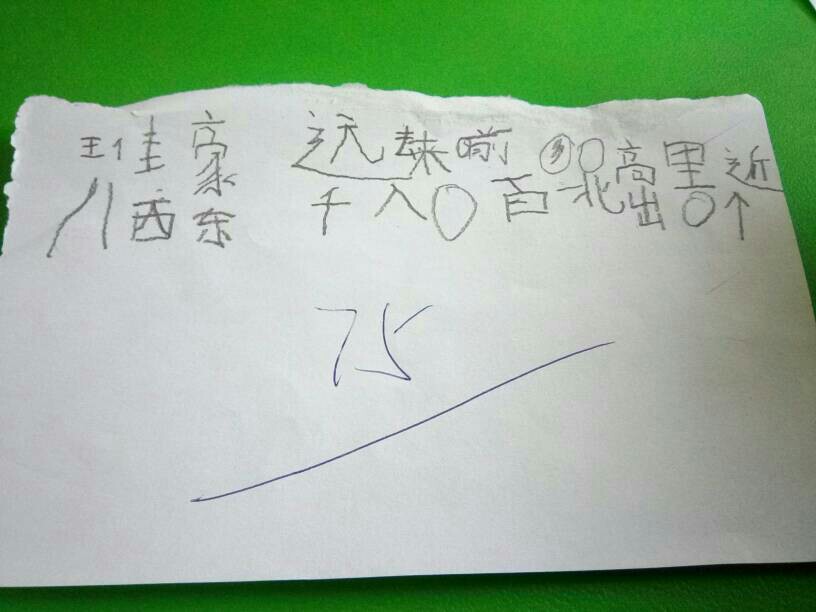 王佳豪 远来前多〇高里近
川西东 千入〇百北出〇个
75